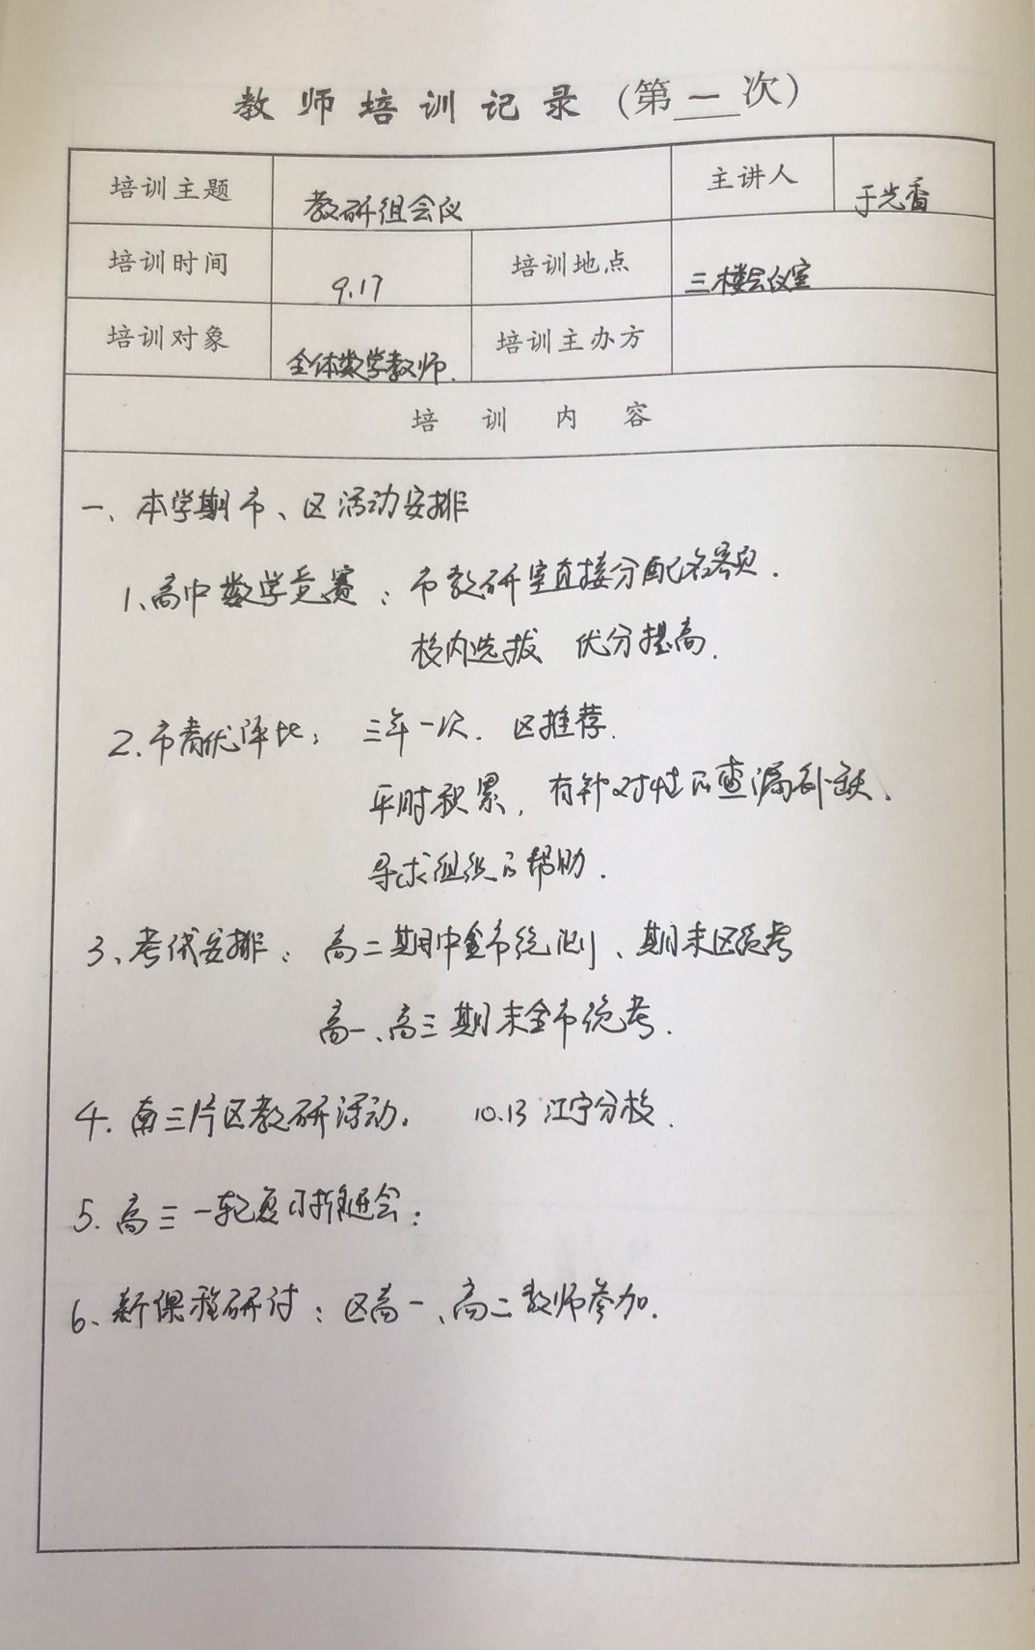 教师培训记录（第一次）
培训主题 教研组会议 主讲人 于光香
培训时间 9.17 培训地点 三楼会议室
培训对象 全体数学教师. 培训主办方
培训内容
一、本学期市、区活动安排
1、高中数学竞赛：市教研室直接分配名额.
校内选拔 优分提高.
2.市青优评比： 三年一次. 区推荐.
平时积累，有针对性的查漏补缺、
寻求组织的帮助.
3、考试安排：高二期中全市统测、期末区统考
高一、高三期末全市统考.
4.南三片区教研活动。 10.13 江宁分校.
5.高三一轮复习推进会：
6、新课程研讨：区高一、高二教师参加.